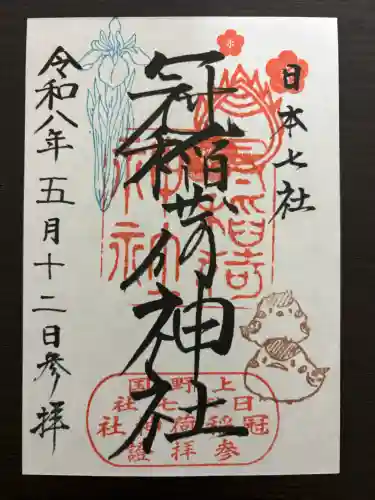 日本七社
冠稲荷神社
令和八年五月十二日参拝
上野国
日七社
冠稲荷神社
参拝證